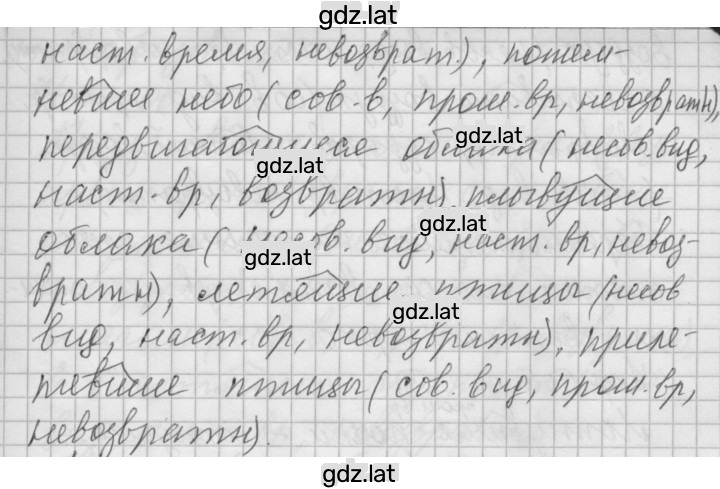 gdz.lat
наст. время, невозврат.), потем-
невшее небо (сов. в, прош. вр, невозвратн),
передвигающиеся облака (несов. вид,
gdz.lat
gdz.lat
наст. вр, возвратн), плывущие
gdz.lat
облака (несов. вид, наст. вр, невоз-
gdz.lat
вратн), летящие птицы (несов
gdz.lat
вид, наст. вр, невозвратн), приле-
тевшие птицы (сов. вид, прош. вр,
невозвратн).
gdz.lat